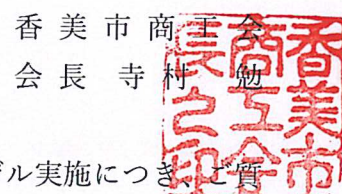 香美市商工会
会長 寺村 勉
香美市
商工会
長之印
ル実施につき、ご質